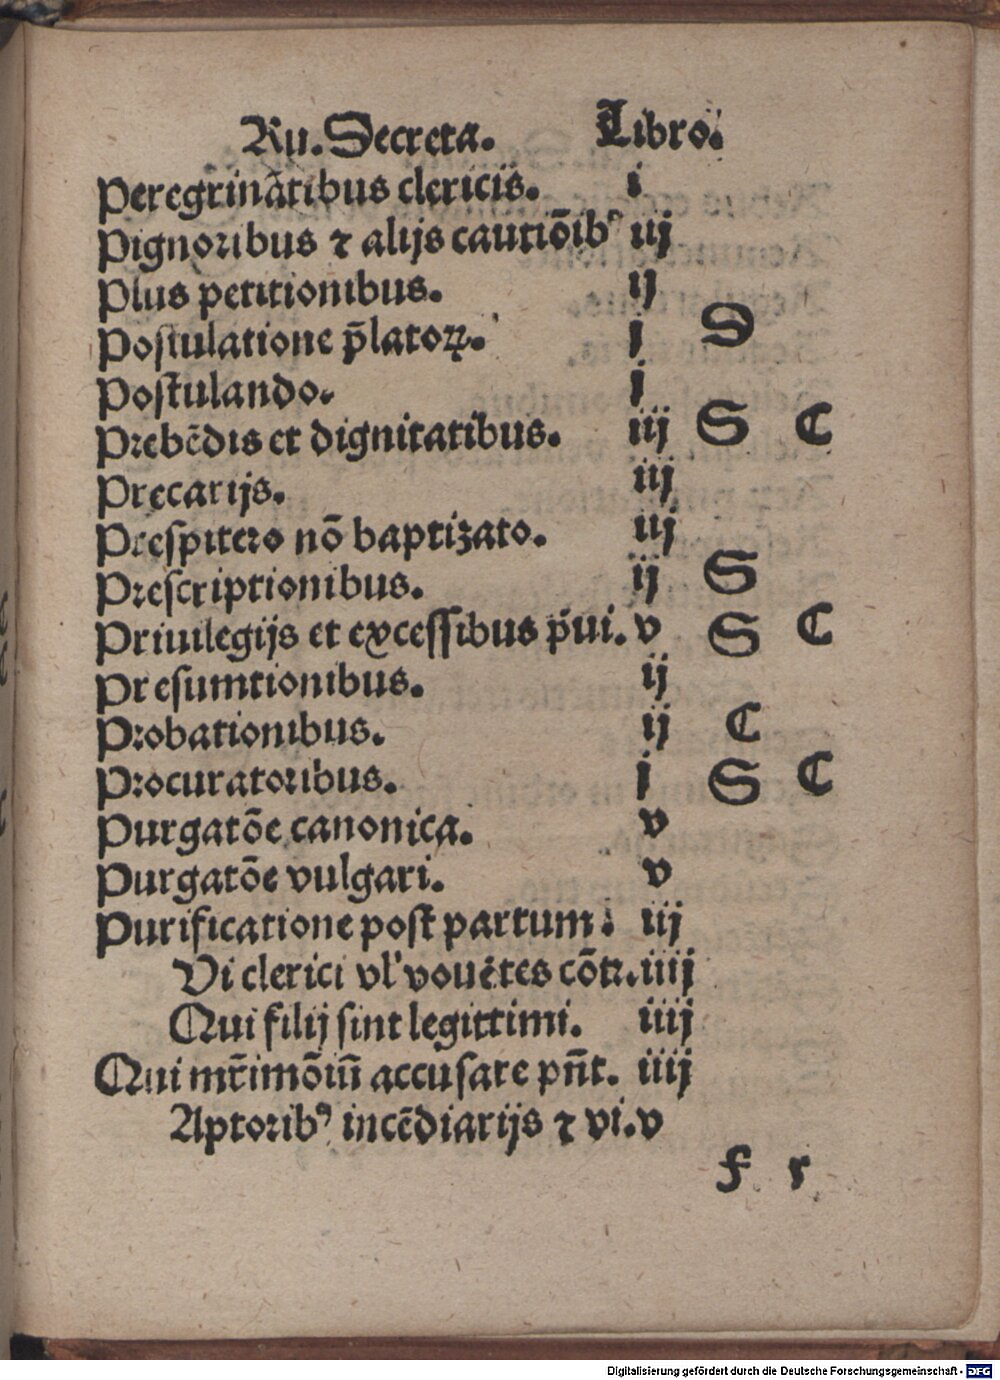 Ru. Secreta. Libro.
Peregrinãtibus clericis. i
Pignoribus ⁊ alijs cautiõibꝰ iij
Plus petitionibus. ij
Postulatione p̃latoꝝ. i S
Postulando. j
Prebẽdis et dignitatibus. iij S C
Precarijs. iij
Prespitero nõ baptizato. iij
Prescriptionibus. ij S
Priuilegijs et excessibus p̃ui. v S C
Presumtionibus. ij
Probationibus. ij C
Procuratoribus. j S C
Purgatõe canonica. v
Purgatõe vulgari. v
Purificatione post partum: iij
Vi clerici vl' vouẽtes cõtꝛ. iiij
Qui filij sint legittimi. iiij
Qui mr̃imõiũ accusare pñt. iiij
Aptoribꝰ incẽdiarijs ⁊ vi. v
f r
Digitalisierung gefördert durch die Deutsche Forschungsgemeinschaft - DFG